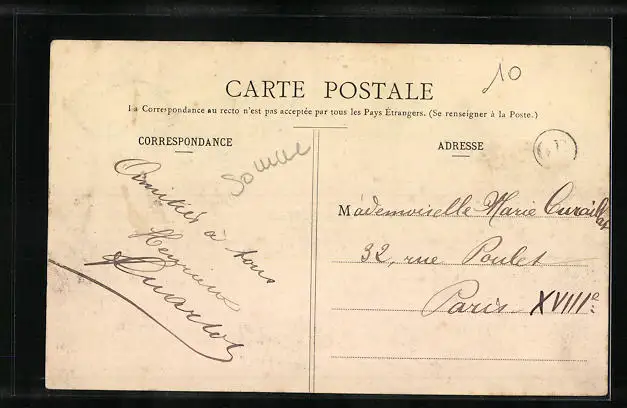 10
CARTE POSTALE
La Correspondance au recto n'est pas acceptée par tous les Pays Étrangers. (Se renseigner à la Poste.)
CORRESPONDANCE
ADRESSE
Somme
Amitiés à tous
Mademoiselle Marie
32, rue Poulet
Paris XVIIIe